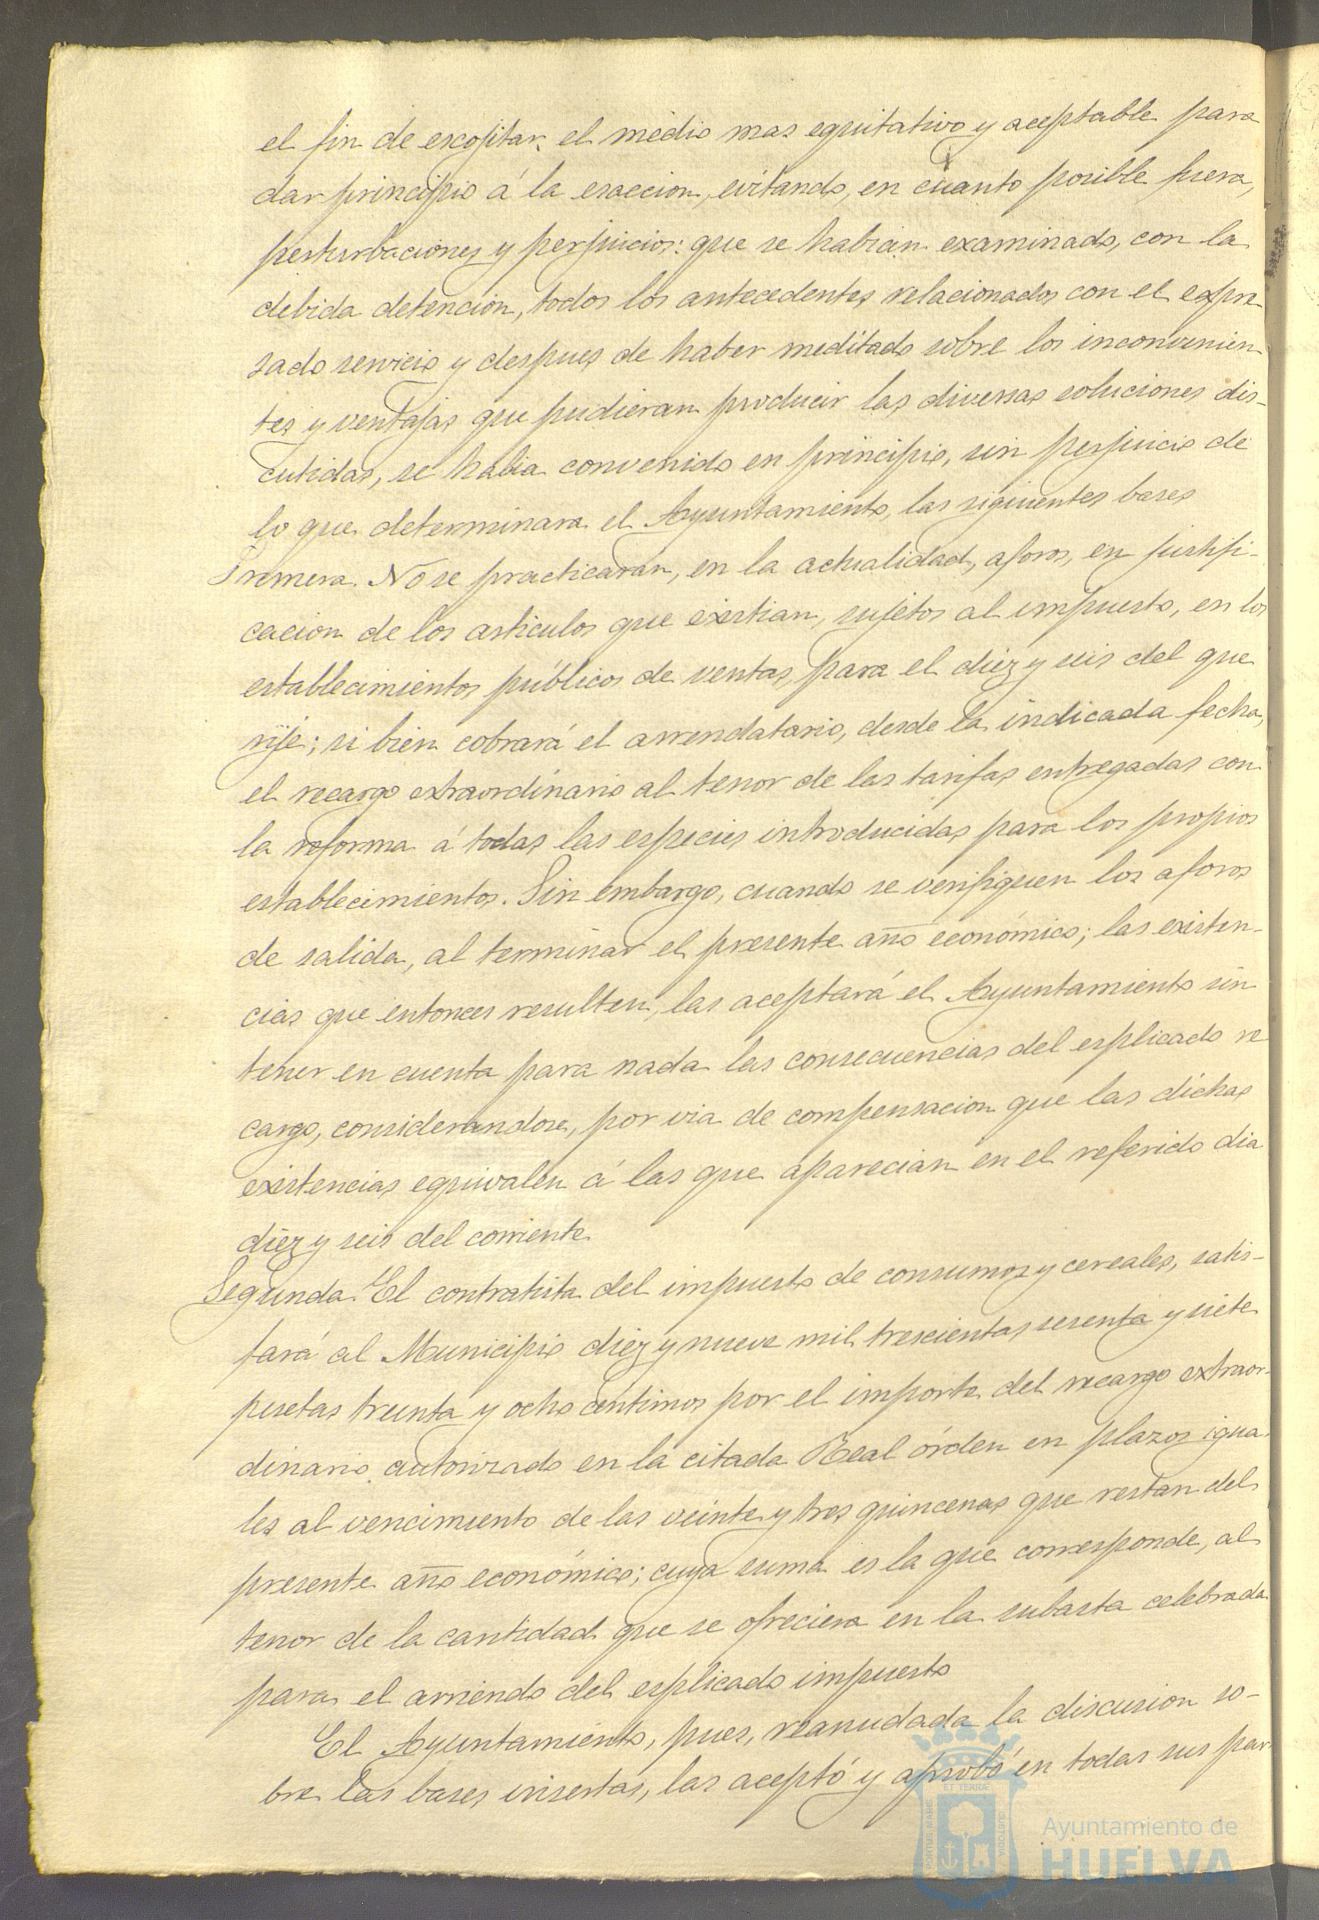 el fin de escojitar el medio mas equitativo y aceptable para
dar principio á la esaccion, evitando, en cuanto posible fuera,
perturbaciones y perjuicios: que se habian examinado, con la
debida detencion, todos los antecedentes relacionados con el expre
sado servicio y despues de haber meditado sobre los inconvenien
tes y ventajas que pudieran producir las diversas soluciones dis-
cutidas, se habia convenido en principio, sin perjuicio de
lo que determinara el Ayuntamiento, las siguientes bases
Primera. No se practicarán, en la actualidad, aforos, en justifi-
cacion de los articulos que existian, sujetos al impuesto, en los
establecimientos públicos de ventas, para el diez y seis del que
rije; si bien cobrará el arrendatario, desde la indicada fecha,
el recargo extraordinario al tenor de las tarifas entregadas con
la reforma á todas las especies introducidas para los propios
establecimientos. Sin embargo, cuando se verifiquen los aforos
de salida, al terminar el presente año económico; las existen-
cias que entonces resulten, las aceptará el Ayuntamiento sin
tener en cuenta para nada las consecuencias del esplicado re
cargo, considerandose, por via de compensacion que las dichas
existencias equivalen á las que aparecian en el referido dia
diez y seis del corriente
Segunda. El contratista del impuesto de consumos y cereales, satis-
fará al Municipio diez y nueve mil trescientas sesenta y siete
pesetas treinta y ocho centimos por el importe del recargo extraor-
dinario autorizado en la citada Real órden en plazos igua-
les al vencimiento de las veinte y tres quincenas que restan del
presente año económico; cuya suma es la que corresponde, al
tenor de la cantidad que se ofreciera en la subasta celebrada
para el arriendo del esplicado impuesto
El Ayuntamiento, pues, reanudada la discusion so-
bre las bases insertas, las aceptó y aprobó en todas sus par
Ayuntamiento de
HUELVA